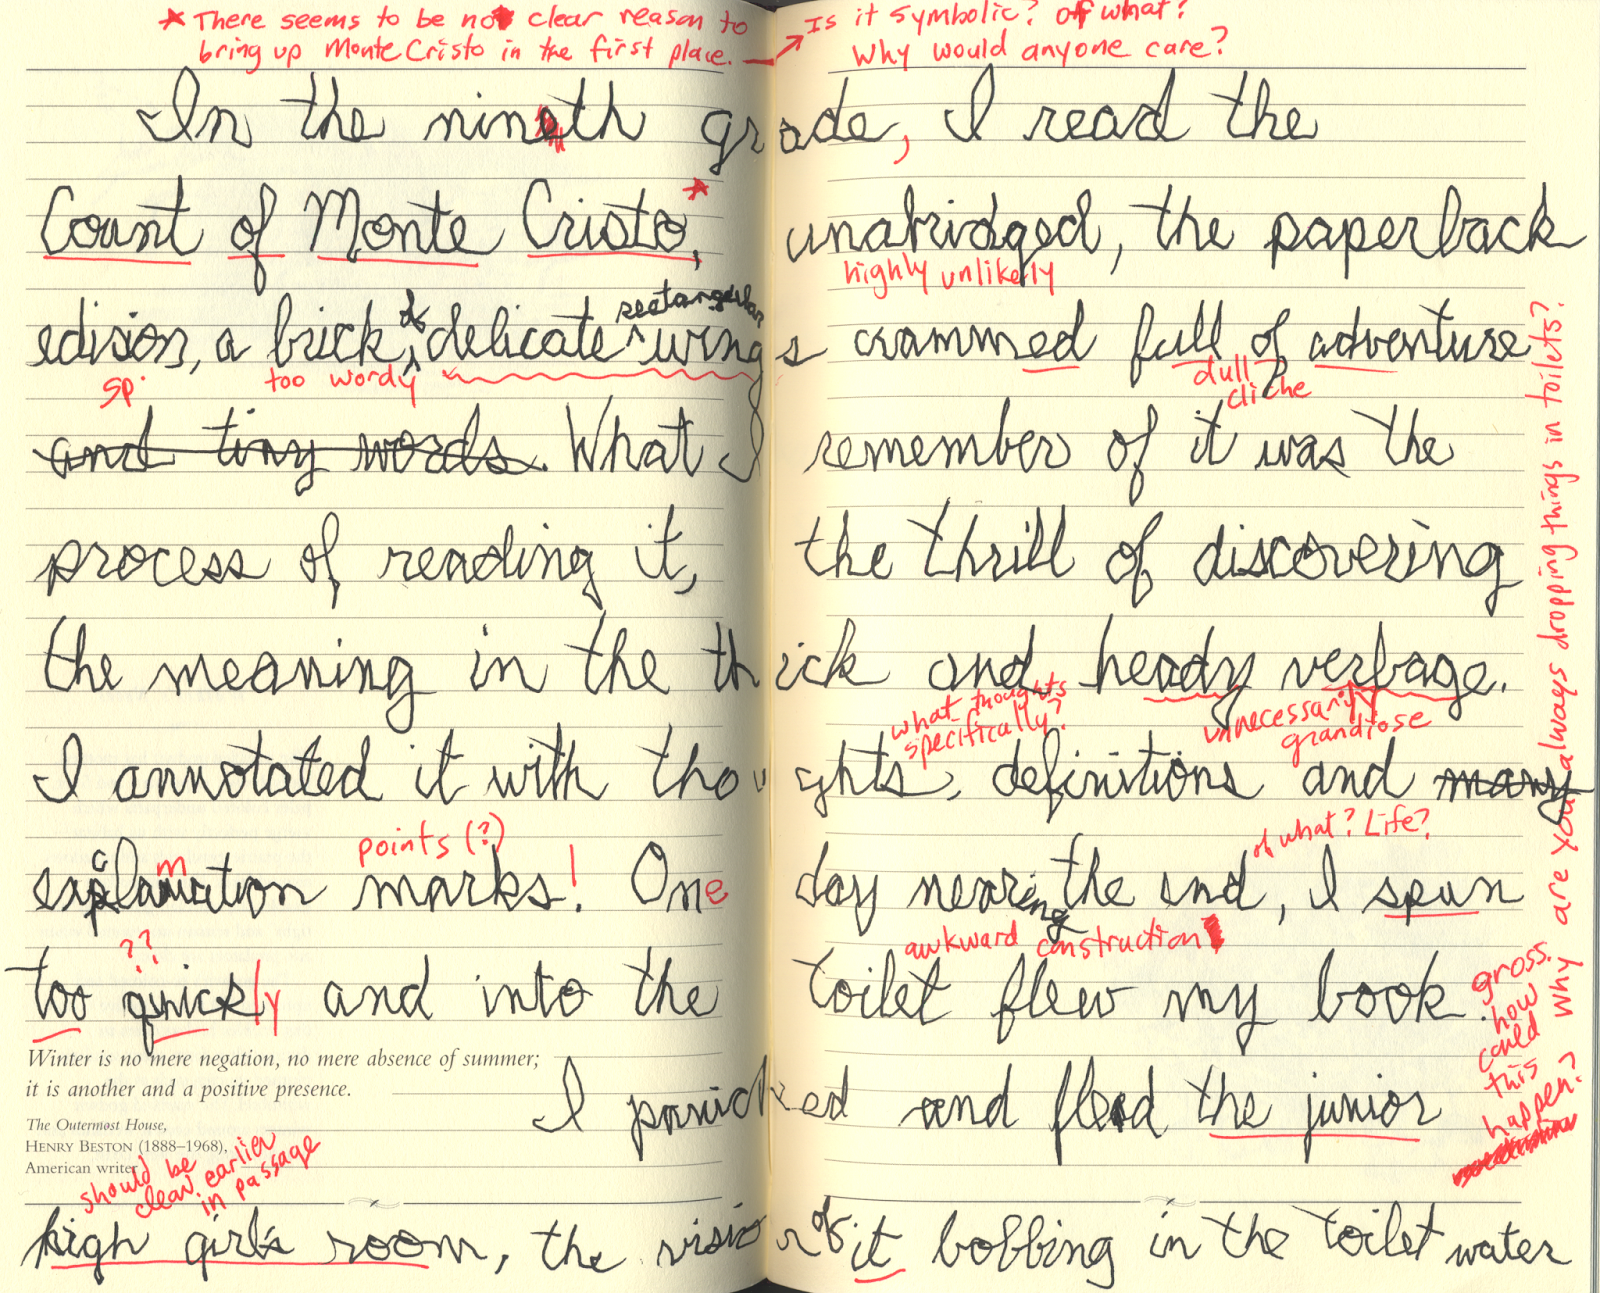 * There seems to be no clear reason to
bring up Monte Cristo in the first place. →
Is it symbolic? of what?
Why would anyone care?
In the nineth grade, I read the
Count of Monte Cristo,* unabridged, the paperback
highly unlikely
rectangular
edision, a brick, of delicate wings crammed full of adventure
sp. too wordy dull cliche
and tiny words. What I remember of it was the
process of reading it, the thrill of discovering
the meaning in the thick and heady verbage.
what thoughts specifically?
unnecessarily grandiose
I annotated it with thoughts, definitions and many
points (?)
of what? Life?
exclamation marks! One day nearing the end, I spun
??
awkward construction
too quickly and into the toilet flew my book.
gross.
how
could
this
happen?
Why are you always dropping things in toilets?
Winter is no mere negation, no mere absence of summer;
it is another and a positive presence.
The Outermost House,
HENRY BESTON (1888–1968),
American writer
I panicked and fled the junior
should be
clear earlier
in passage
high girls room, the vision of it bobbing in the toilet water